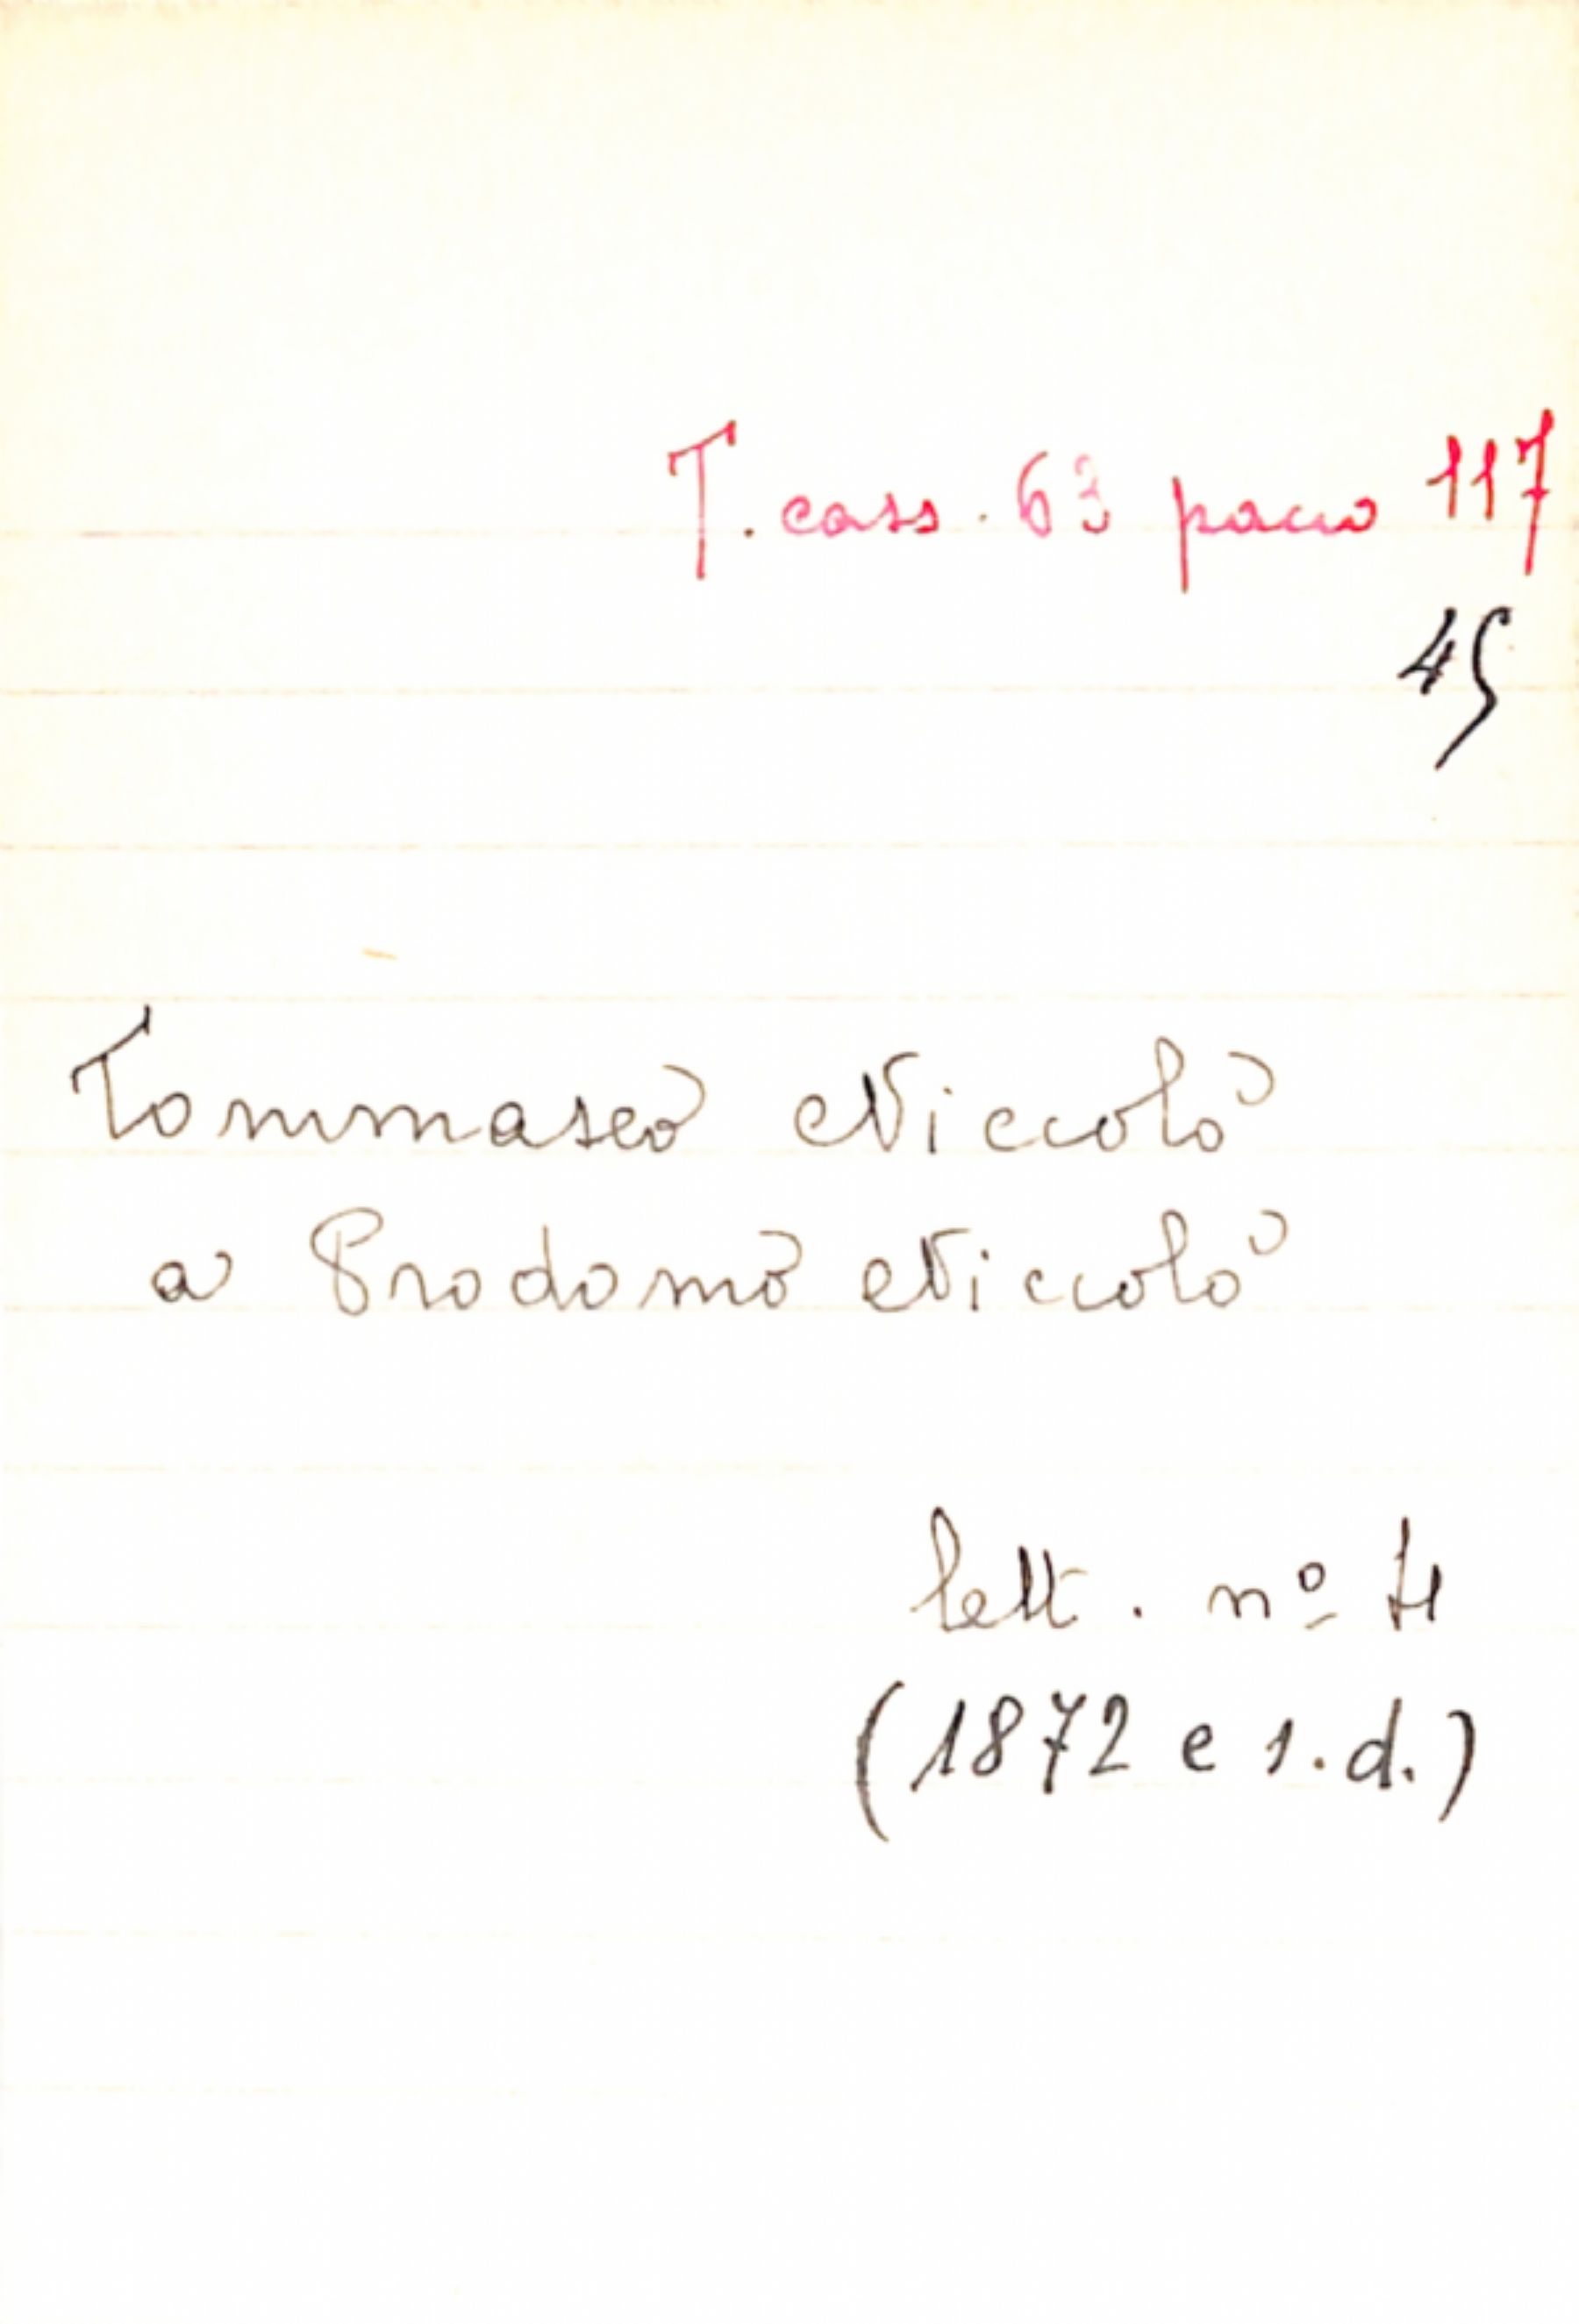 T. cass. 63 pacco 117
45
Tommaseo Niccolò
a Prodomo Niccolò
lett. nº 4
(1872 e s.d.)